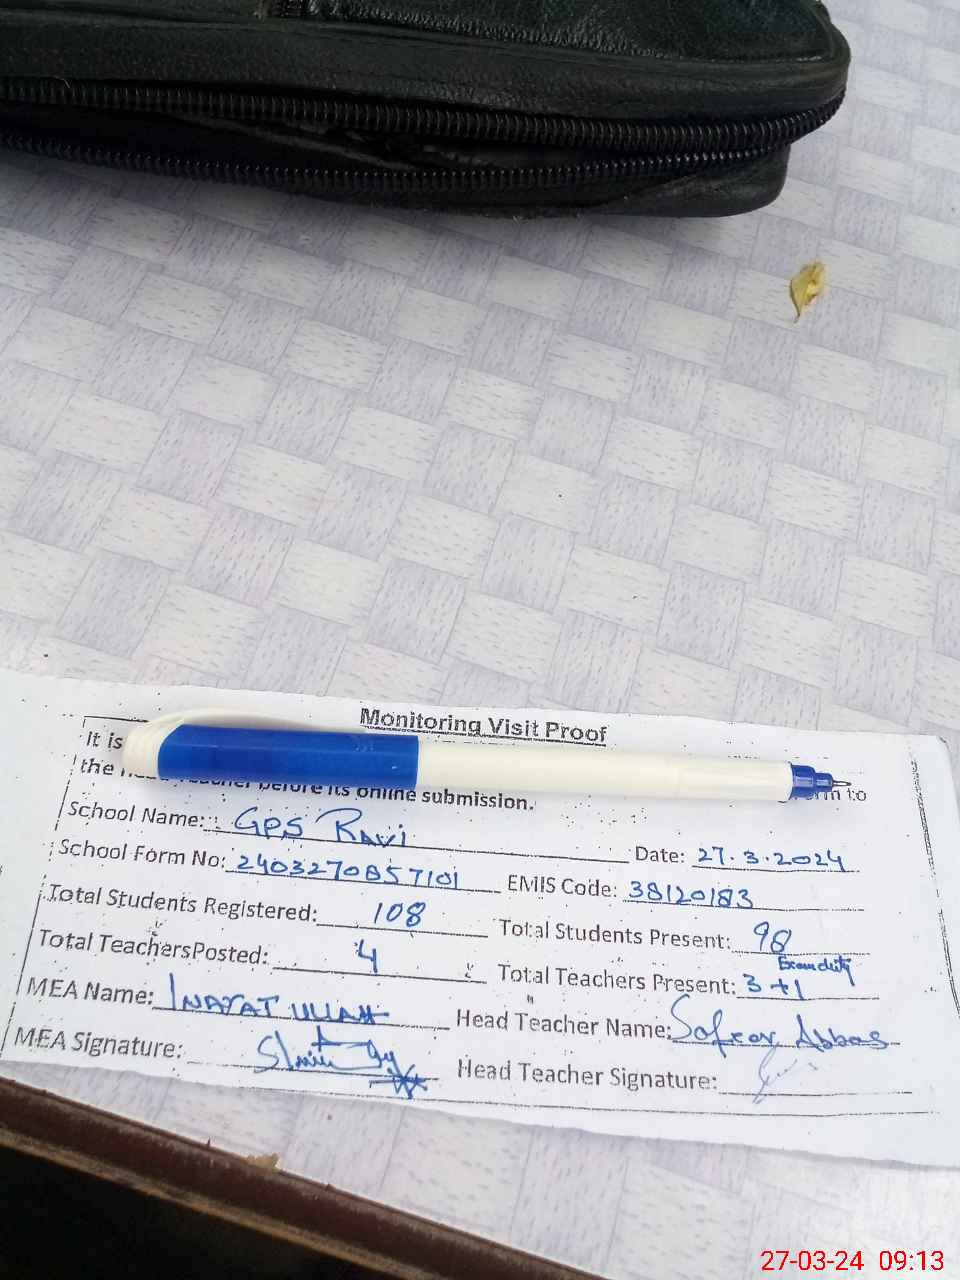 Monitoring Visit Proof
It is
the
before its online submission.
to
School Name: GPS Ravi
Date: 27.3.2024
School Form No: 2403270857101
EMIS Code: 38120183
Total Students Registered: 108
Total Students Present: 98
Total TeachersPosted: 4
Total Teachers Present: 3+1 Exam duty
MEA Name: INAYAT ULLAH
Head Teacher Name: Abbas
MEA Signature:
Head Teacher Signature:
27-03-24 09:13